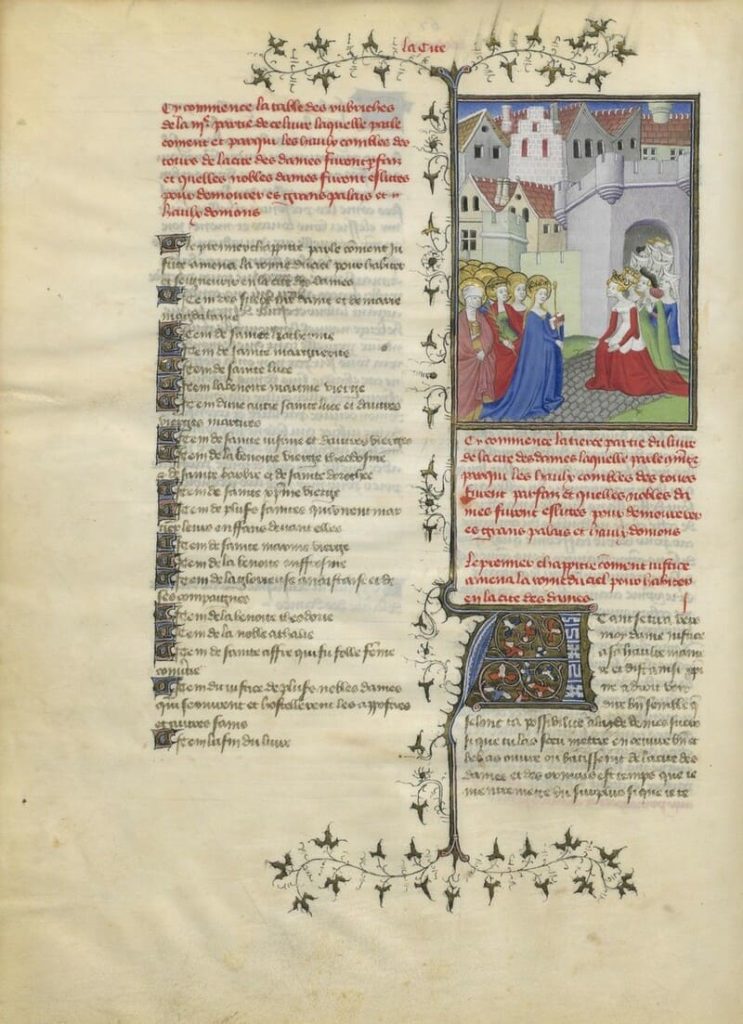 la Cite
Cy commence la table des rubriches
de la iij.e partie de ce livre laquelle parle
coment et par qui les haulx combles des
tours de la cite des dames furent parfais
et quelles nobles dames furent eslutes
pour demourer es grans palais et es
haulx donions
Le premier chappitre parle coment iu
stice amena la royne du ciel pour habiter
et seigneurir en la cite des dames
Item des seurs nre dame et de marie
magdalaine
Item de sainte katherine
Item de sainte marguerite
Item de sainte luce
Item la benoite martine vierge
Item dune autre sainte luce et dautres
vierges martires
Item de sainte iustine et dautres vierges
Item de la benoite vierge theodosine
de sainte barbre et de sainte dorothee
Item de sainte xpine vierge
Item de pluss saintes qui virent mar
tirer leurs enffans devant elles
Item de sainte marine vierge
Item de la benoite euffrosine
Item de la glorieuse anastaise et de
ses compaignes
Item de la benoite theodorie
Item de la noble athalie
Item de sainte affre qui fu folle feme
Item du iustice de pluss nobles dames
qui servirent et hostellerent les appostres
et autres sains
Item la fin du livre
Cy commence la tierce partie du livre
de la cite des dames laquelle parle coment et
par qui les haulx combles des tours
furent parfais et quelles nobles da
mes furent eslutes pour demourer
es grans palais et haulx donions
Le premier chappitre coment iustice
amena la royne du ciel pour habiter
en la cite des dames
A tant se tira vers
moy dame iustice
a sa haulte maniere
et dist ainsi xpi
ne a droit voir
dire bien semble q
selont ta possibilite a laide de mes seurs
si que tu las sceu mettre en oeuvre bien et
bel as ouvre ou batissement de la cite des
dames et des or mais est temps que ie
mentremette du surplus si que ie te